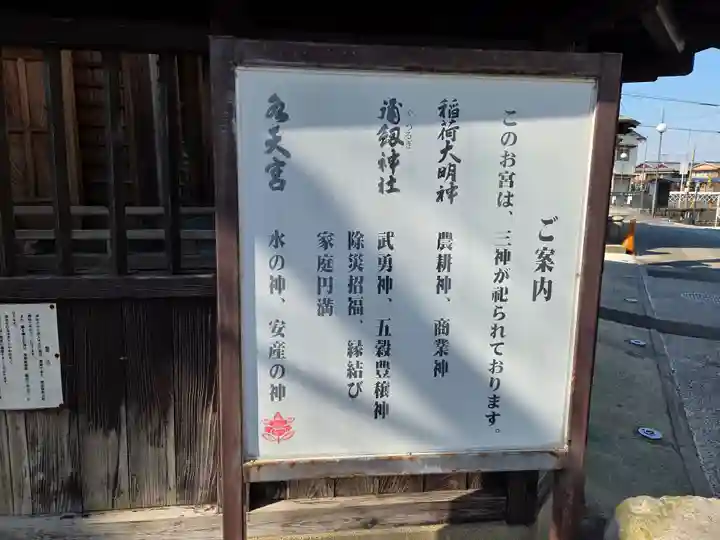 ご案内
このお宮は、三神が祀られております。
稲荷大明神 農耕神、商業神
つるぎ
釼神社 武勇神、五穀豊穣神
除災招福、縁結び
家庭円満
水天宮 水の神、安産の神